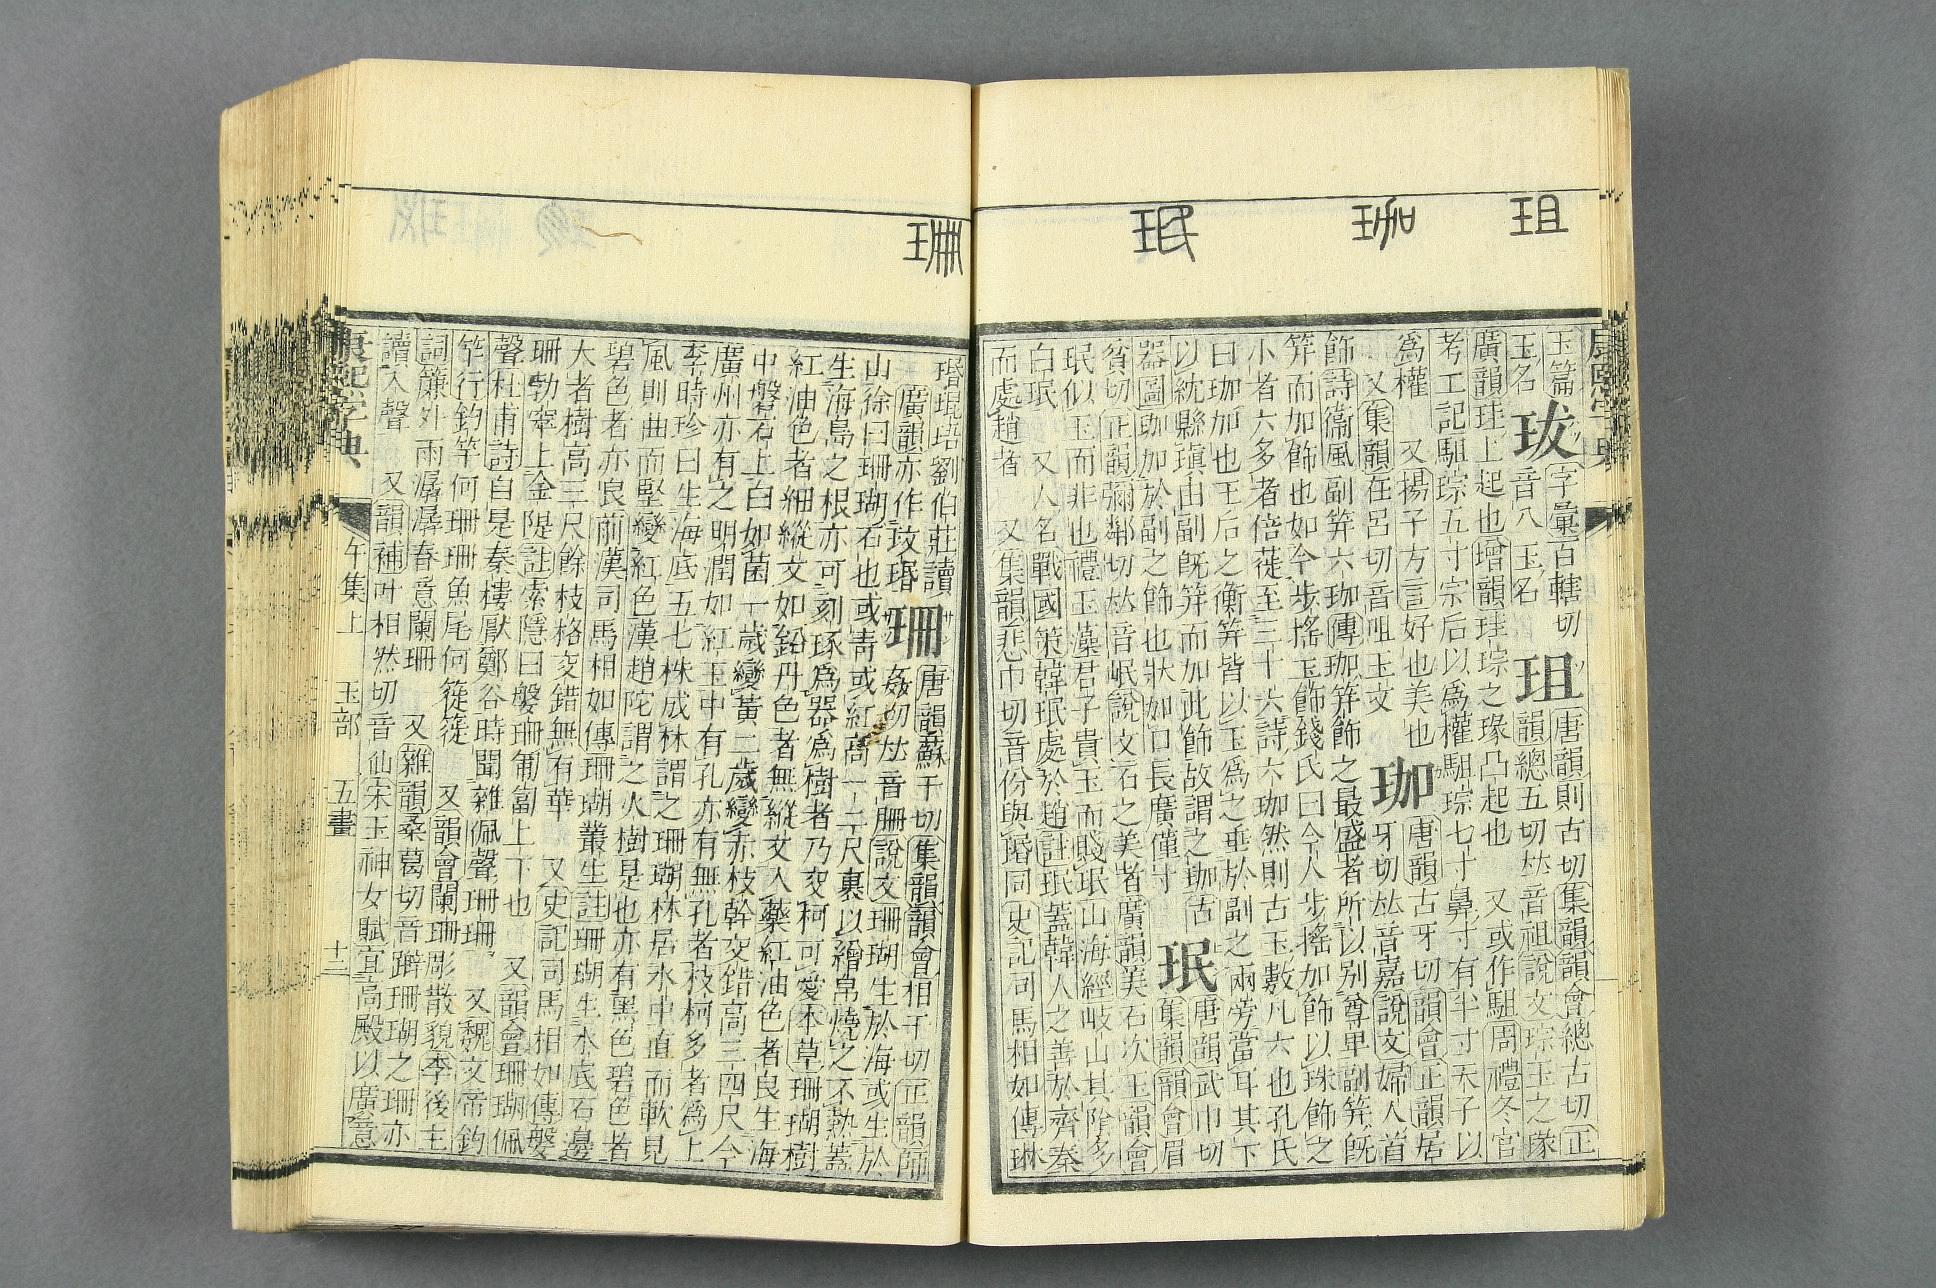 珇 珈 珉
康熙字典
玉篇 字彙百轄切 珇 唐韻則古切集韻韻會總古切正
玉名 音八玉名 韻總五切𠀤音祖說文琮玉之瑑
廣韻珪上起也增韻珪琮之瑑凸起也 又或作駔周禮冬官
考工記駔琮五寸宗后以爲權駔琮七寸鼻寸有半寸天子以
爲權 又揚子方言好也美也 珈 唐韻古牙切韻會正韻居
又集韻在呂切音咀玉文 牙切𠀤音嘉說文婦人首
飾詩衞風副笄六珈傳珈笄飾之最盛者所以别尊卑副笄旣
笄而加飾也如今步搖玉飾錢氏曰今人步搖加飾以珠飾之
小者六多者倍蓰至三十六詩六珈然則古玉數凡六也孔氏
曰珈加也王后之衡笄皆以玉爲之垂於副之兩旁當耳其下
以紞縣瑱由副旣笄而加此飾故謂之珈古 珉 唐韻武巾切
器圖珈加於副之飾也狀如口長廣僅寸 集韻韻會眉
貧切正韻彌鄰切𠀤音岷說文石之美者廣韻美石次玉韻會
珉似玉而非也禮玉藻君子貴玉而賤珉山海經岐山其隂多
白珉 又人名戰國策韓珉處於趙註珉蓋韓人之善於齊秦
而處趙者 又集韻悲巾切音份與瑉同史記司馬相如傳琳
珊
瑉琨珸劉伯莊讀 珊 唐韻蘇干切集韻韻會相干切正韻師
廣韻亦作玟瑉 姦切𠀤音跚說文珊瑚生於海或生於
山徐曰珊瑚石也或靑或紅高一二尺裹以繒帛燒之不熱蓋
生海島之根亦可刻琢爲器爲樹者乃交柯可愛本草珊瑚樹
紅油色者細縱文如鉛丹色者無縱文入藥紅油色者良生海
中盤石上白如菌一歲變黃二歲變亦枝幹交錯高三四尺今
廣州亦有之明潤如紅玉中有孔亦有無孔者枝柯多者爲上
李時珍曰生海底五七株成林謂之珊瑚林居水中直而軟見
風則曲而堅變紅色漢趙陀謂之火樹是也亦有黑色碧色者
碧色者亦良前漢司馬相如傳珊瑚叢生註珊瑚生水底石邊
大者樹高三尺餘枝格交錯無有華 又史記司馬相如傳媻
珊勃窣上金隄註索隱曰媻珊匍匐上下也 又韻會珊瑚佩
聲杜甫詩自是秦樓厭鄭谷時聞雜佩聲珊珊 又魏文帝釣
竿行釣竿何珊珊魚尾何簁簁 又韻會闌珊彫散貌李後主
詞簾外雨潺潺春意闌珊 又雜韻桑葛切音躃珊瑚之珊亦
讀入聲 又韻補叶相然切音仙宋玉神女賦宜高殿以廣意
康熙字典 午集上 玉部 五畫 十三